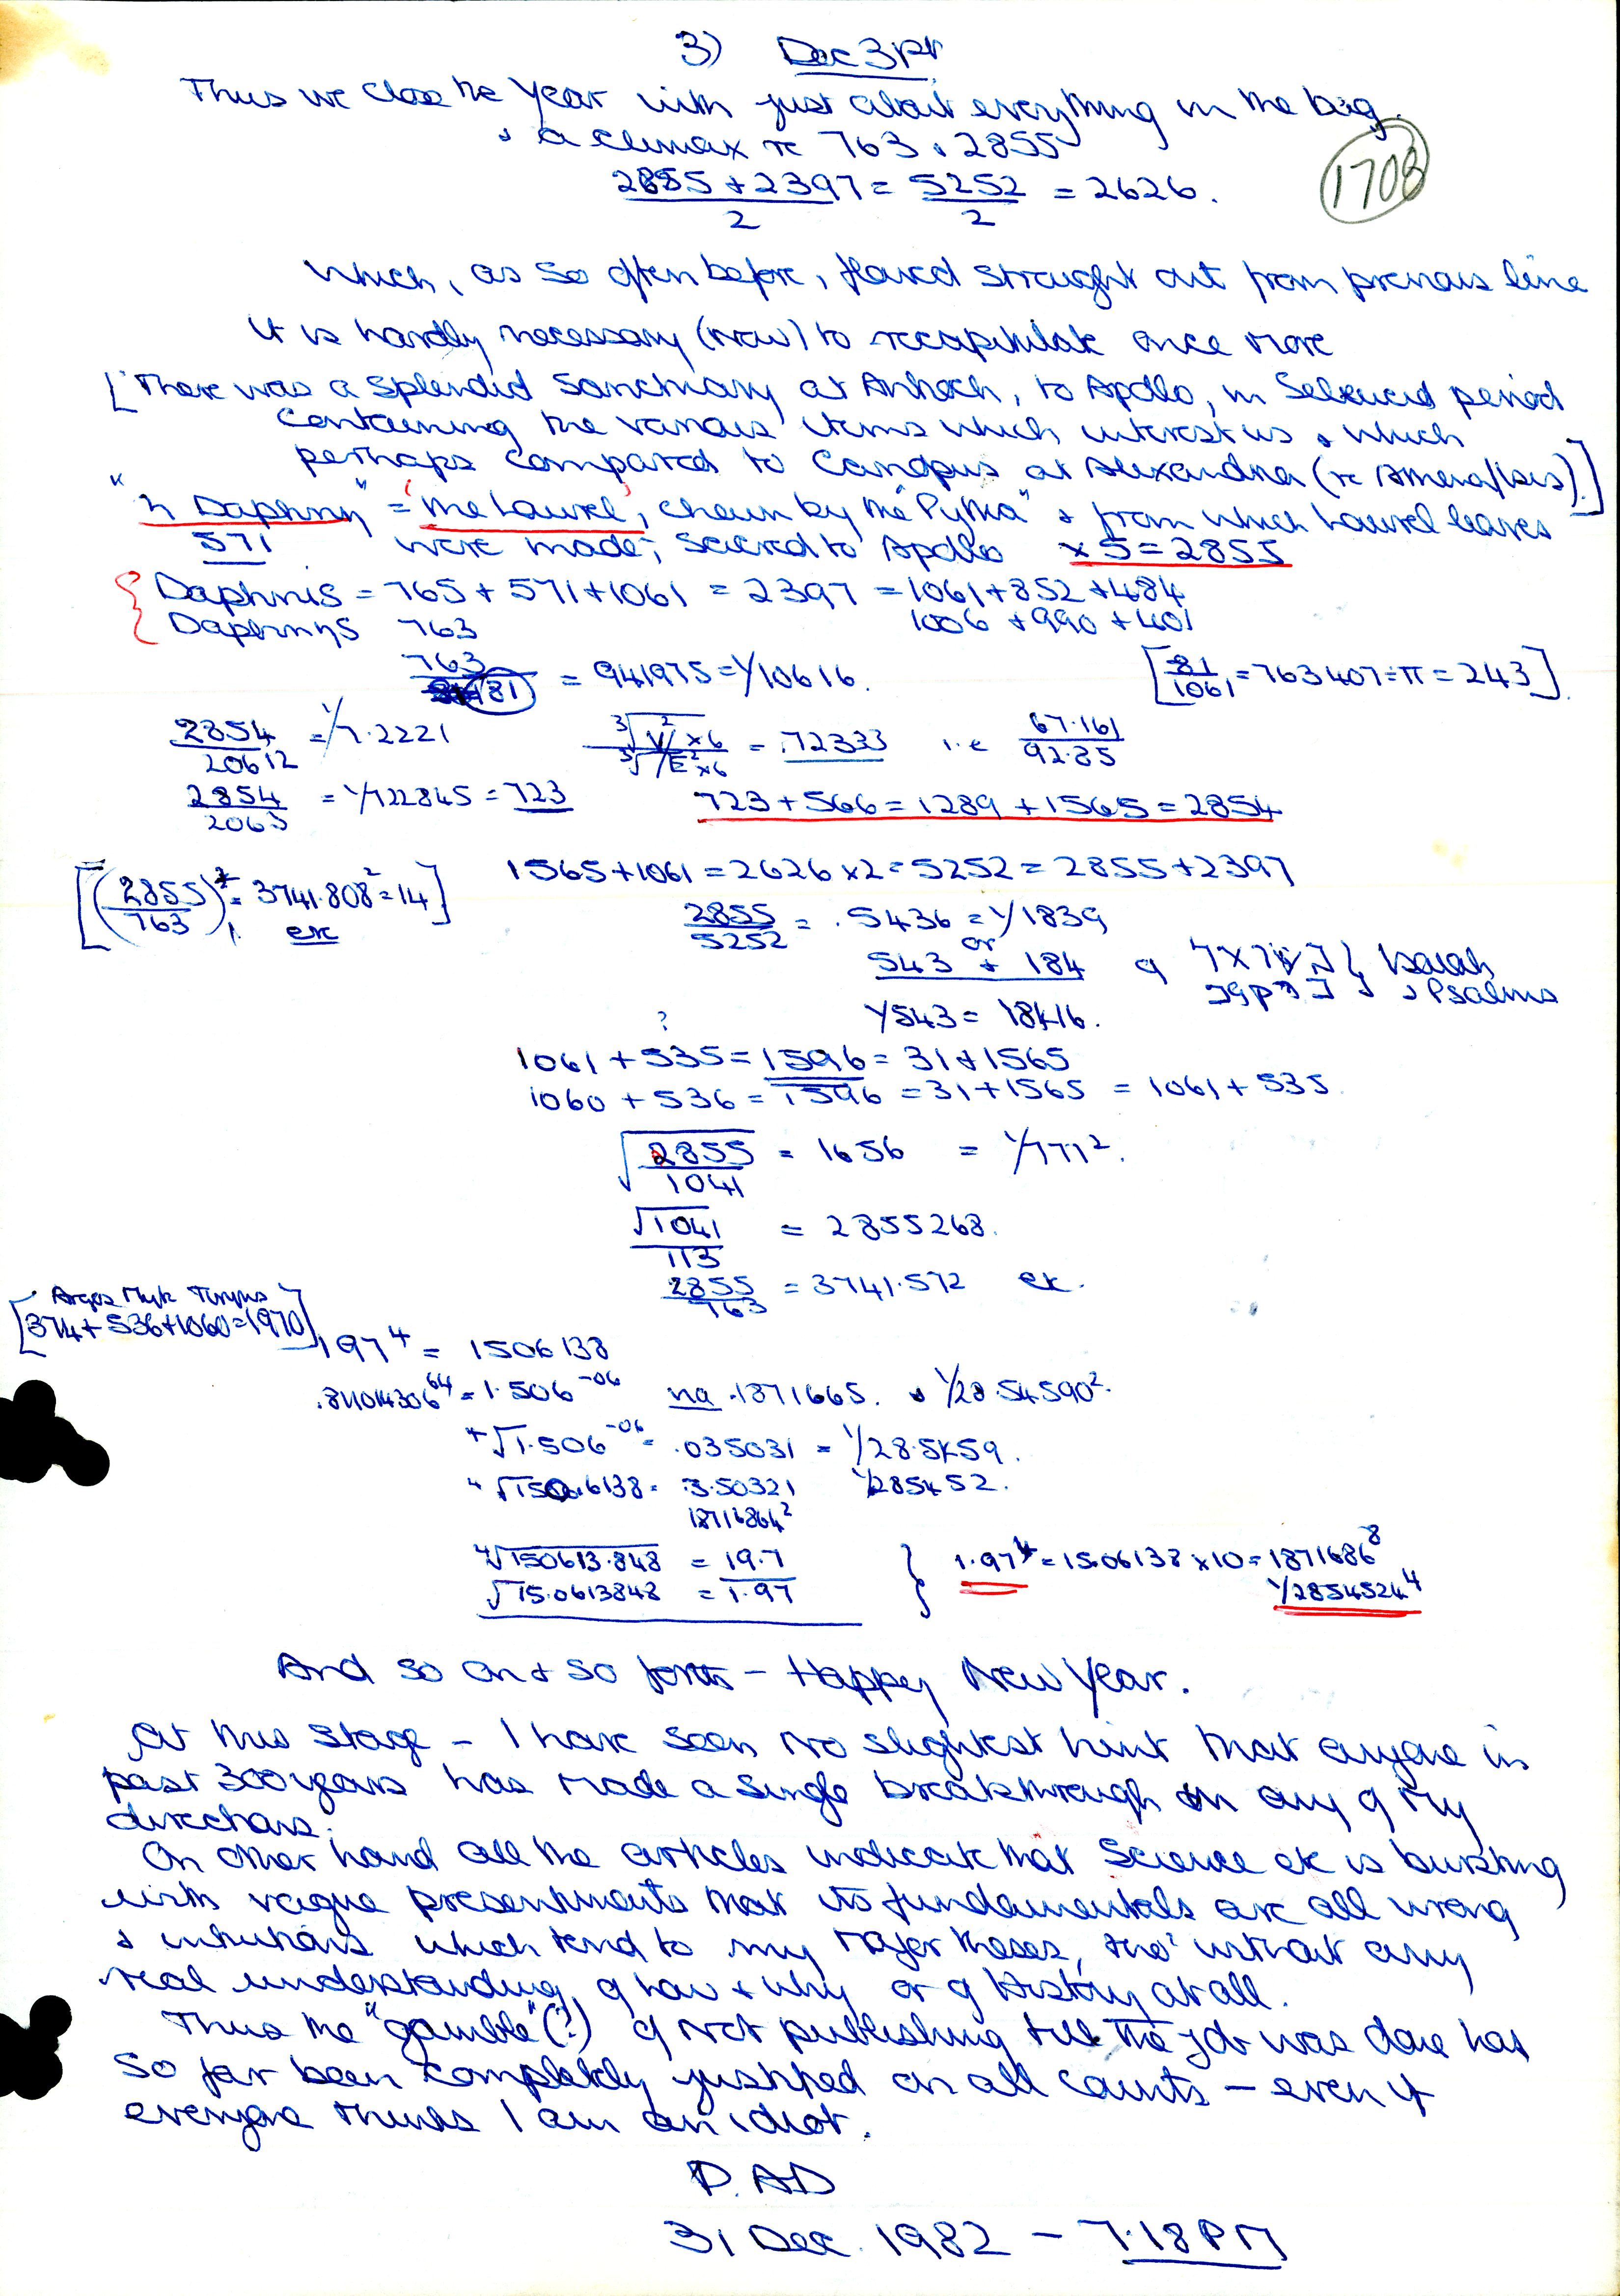 3) Dec 31st
Thus we close the year with just about everything in the bag.
& a climax re 763 & 2855
1708
2855 + 2397 = 5252 = 2626.
2 2
Which, as so often before, flowed straight out from previous line
it is hardly necessary (now) to recapitulate once more
[There was a splendid Sanctuary at Antioch, to Apollo, in Seleucid period
containing the various items which interest us & which
perhaps compared to Canopus at Alexandria (re Athena/Isis)]
"η Daphnη" = 'the Laurel', chewn by the "Pythia" & from which Laurel leaves
571 were made, sacred to Apollo x 5 = 2855
Daphnis = 765 + 571 + 1061 = 2397 = 1061 + 852 + 484
Daphnηs 763 1006 + 990 + 401
763
81 = 941975 = 1/10616.
[81/1061 = 763407 ÷ π = 243]
2854/20612 = 1/7.2221
∛V² x6 / ∛E² x6 = .72333 i.e 67.161/92.85
2854/2063 = 1/722845 = 723
723 + 566 = 1289 + 1565 = 2854
[(2855/763) = 3741.808² = 14] etc
1565 + 1061 = 2626 x 2 = 5252 = 2855 + 2397
2855/5252 = .5436 = 1/1839
or
543 + 184 of Isaiah
& Psalms
1/543 = 18416.
?
1061 + 535 = 1596 = 31 + 1565
1060 + 536 = 1596 = 31 + 1565 = 1061 + 535
√2855/1041 = 1656 = 1/777²
√1041/113 = 2855268.
2855/763 = 3741.572 etc.
[Argos Myk Tiryns
374 + 536 + 1060 = 1970]
197⁴ = 1506138
.811014306⁶⁴ = 1.506⁻⁰⁶ na .1871665. & 1/28.54590².
⁴√1.506⁻⁰⁶ = .035031 = 1/28.5459.
⁴√150.6138 = 3.50321 1/285452.
18716864²
⁴√150613.848 = 19.7
√15.0613848 = 1.97
1.97⁴ = 15.06138 x 10 = 1871686⁸
1/2854524⁴
And so on & so forth - Happy New Year.
At this stage - I have seen no slightest hint that anyone in
past 300 years has made a single breakthrough in any of my
directions.
On other hand all the articles indicate that Science etc is bursting
with vague presentiments that its fundamentals are all wrong
& intuitions which tend to my major theses, tho' without any
real understanding of how & why or of History at all.
Thus the "gamble" (?) of not publishing till the job was done has
so far been completely justified on all counts - even if
everyone thinks I am an idiot.
D.AD
31 Dec. 1982 - 7.18 PM